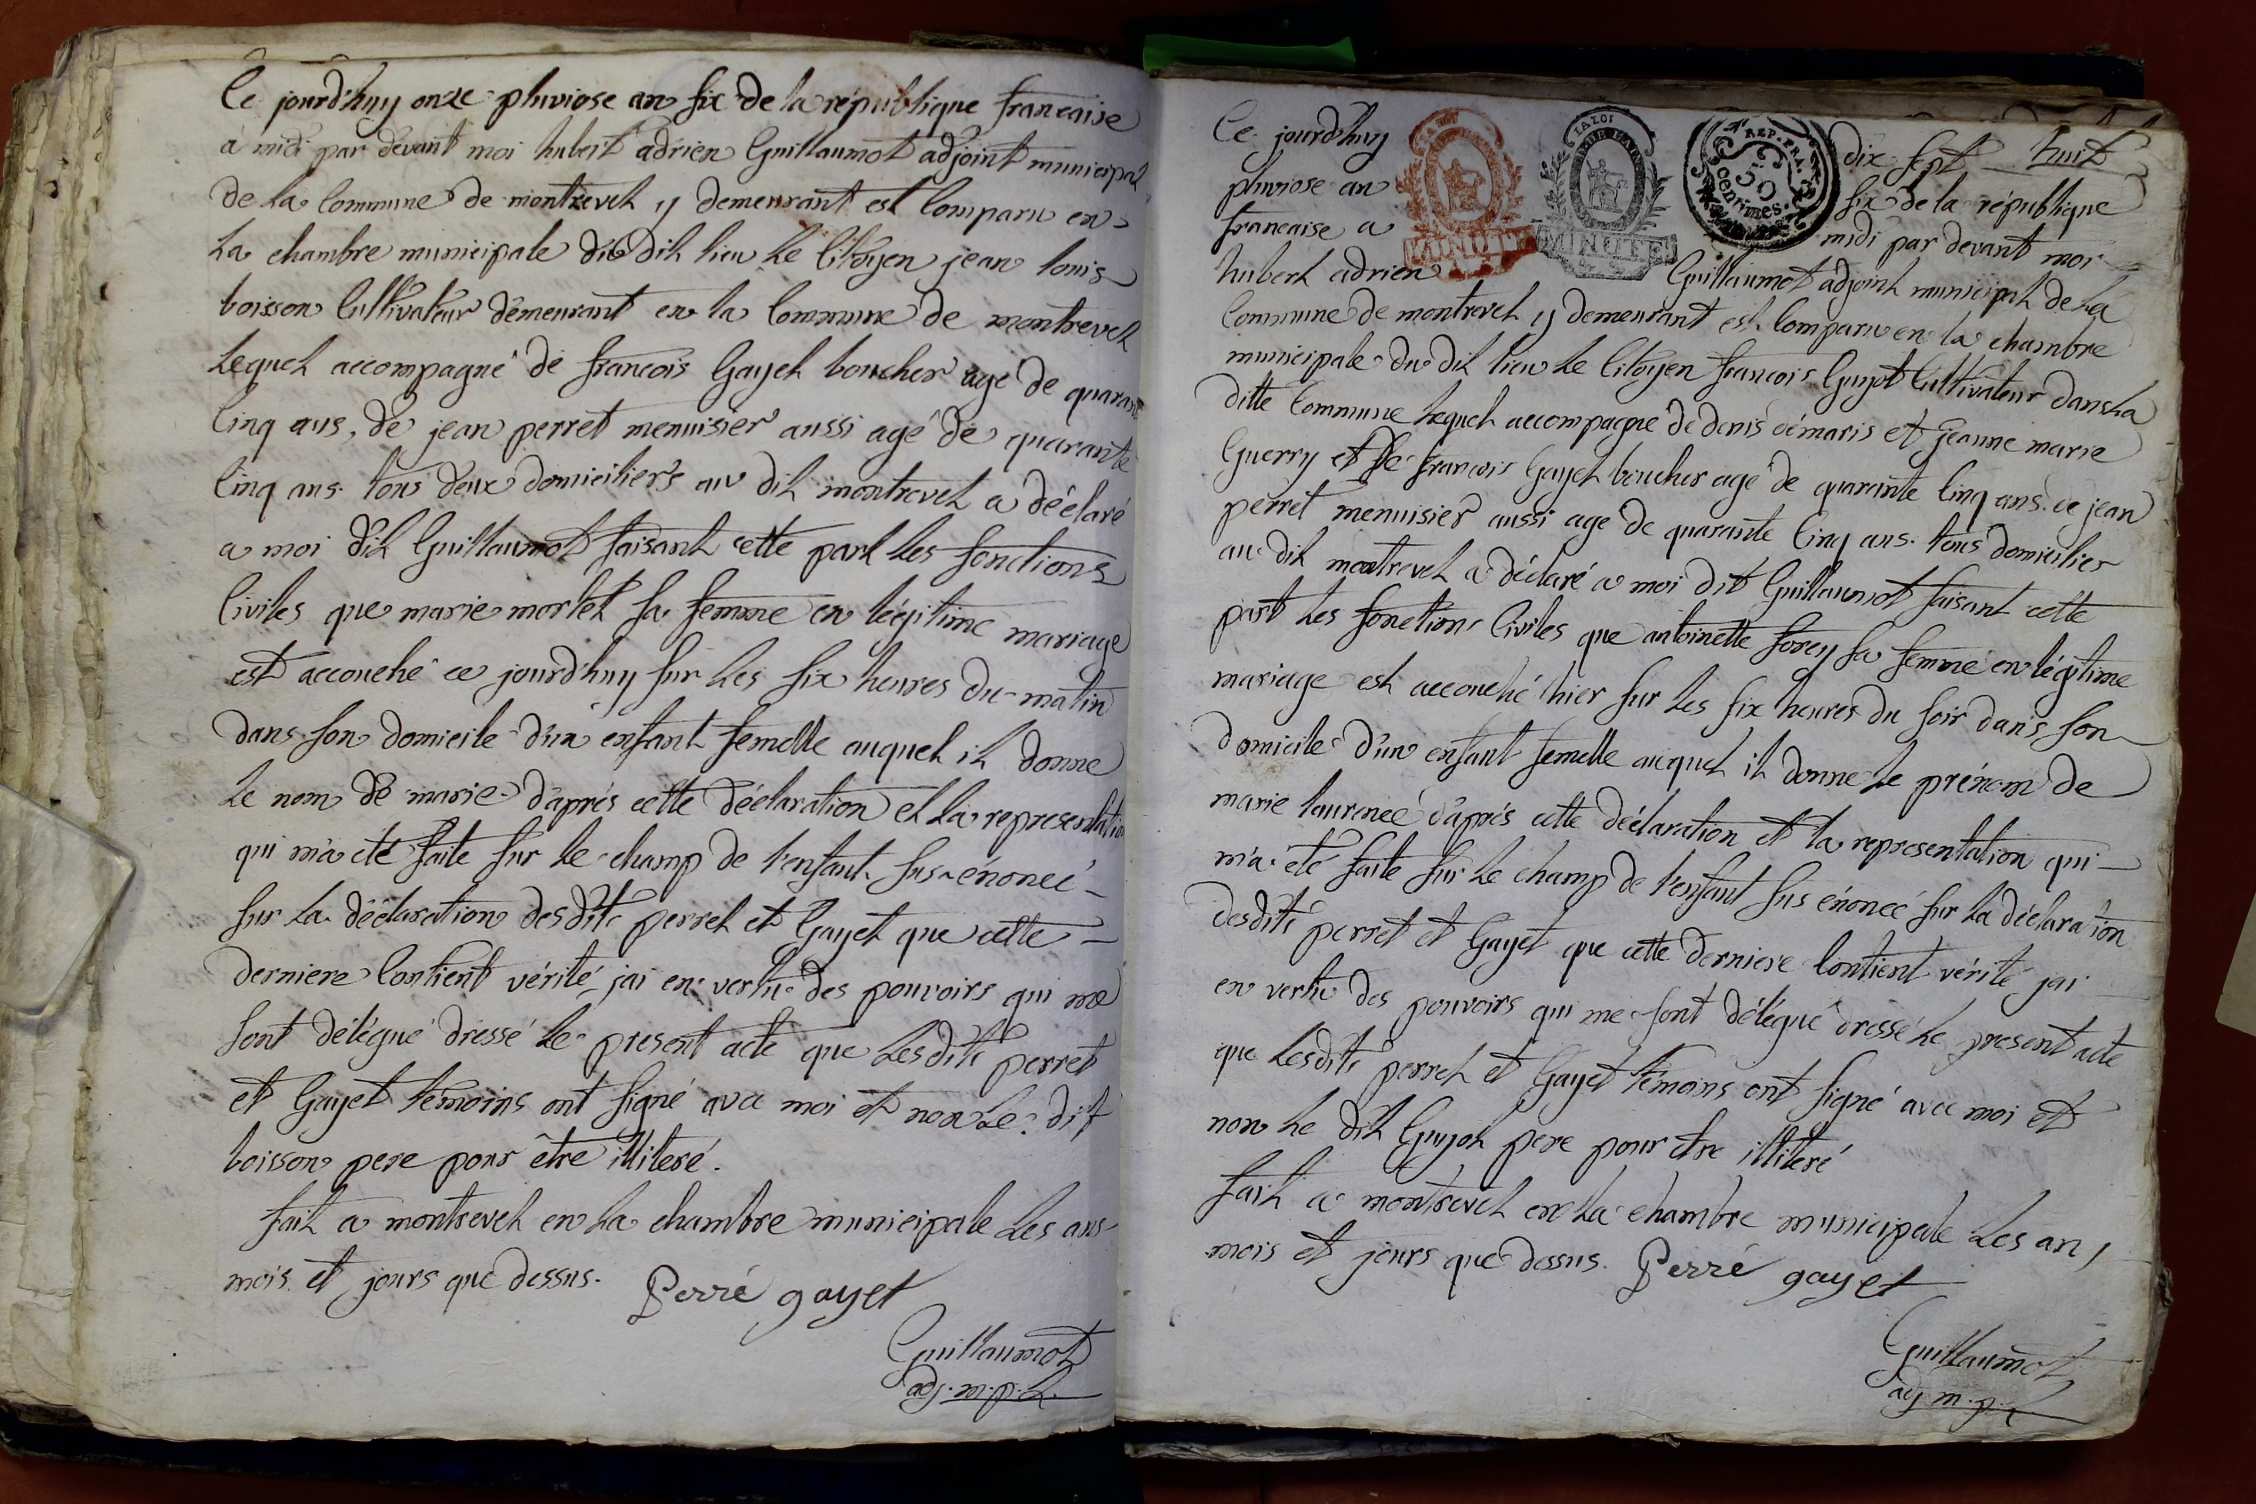 Ce jourd'huy onze pluviose an six de la république francaise
à midi par devant moi hubert adrien Guillaumot adjoint municipal
de la Commune de montrevel y demeurant est Comparu en
la chambre municipale du dit lieu le Citoyen jean louis
boisson Cultivateur demeurant en la Commune de montrevel
lequel accompagné de francois Gayet boucher agé de quarante
Cinq ans, de jean perret menuisier aussi agé de quarante
Cinq ans. tous deux domiciliers au dit montrevel a déclaré
a moi dit Guillaumot faisant cette part les fonctions
Civiles que marie morlet sa femme en légitime mariage
est accouché ce jourd'huy sur les six heures du matin
dans son domicile d'un enfant femelle auquel il donne
le nom de marie d'aprés cette déclaration et la representation
qui m'a été faite sur le champ de l'enfant sus énoncé
sur la déclaration desdits perret et Gayet que cette
derniere Contient vérité, jai en vertu des pouvoirs qui me
sont délégué dressé le present acte que lesdits perret
et Gayet témoins ont signé avec moi et non le dit
boisson pere pour être illiteré.
fait a montrevel en la chambre municipale les ans
mois et jours que dessus. Perré gayet
Guillaumot
adj. m.p.l.
Ce jourd'huy dix sept huit
pluviose an six de la république
francaise a midi par devant moi
hubert adrien Guillaumot adjoint municipal de la
Commune de montrevel y demeurant est Comparu en la chambre
municipale du dit lieu le Citoyen francois Guyot Cultivateur dans la
ditte Commune lequel accompagné de denis démaris et jeanne marie
Guerry et de francois Gayet boucher agé de quarante Cinq ans. de jean
perret menuisier aussi age de quarante Cinq ans. tous domicilies
au dit montrevel a déclaré a moi dit Guillaumot faisant cette
part les fonctions Civiles que antoinette forey sa femme en légitime
mariage est accouché hier sur les six heures du soir dans son
domicile d'un enfant femelle auquel il donne le prénom de
marie laurence d'aprés cette déclaration et la representation qui
m'a été faite sur le champ de l'enfant sus énoncé sur la déclaration
desdits perret et Gayet que cette derniere Contient vérité jai
en vertu des pouvoirs qui me sont délégué dressé le present acte
que lesdits perret et Gayet témoins ont signé avec moi et
non le dit Guyot pere pour etre illiteré
fait a montrevel en la chambre municipale les an,
mois et jours que dessus. Perré gayet
Guillaumot
adj m.p.l
LA LOI
MINUTE
LA LOI
MINUTE
REP. FRA.
50
centimes.